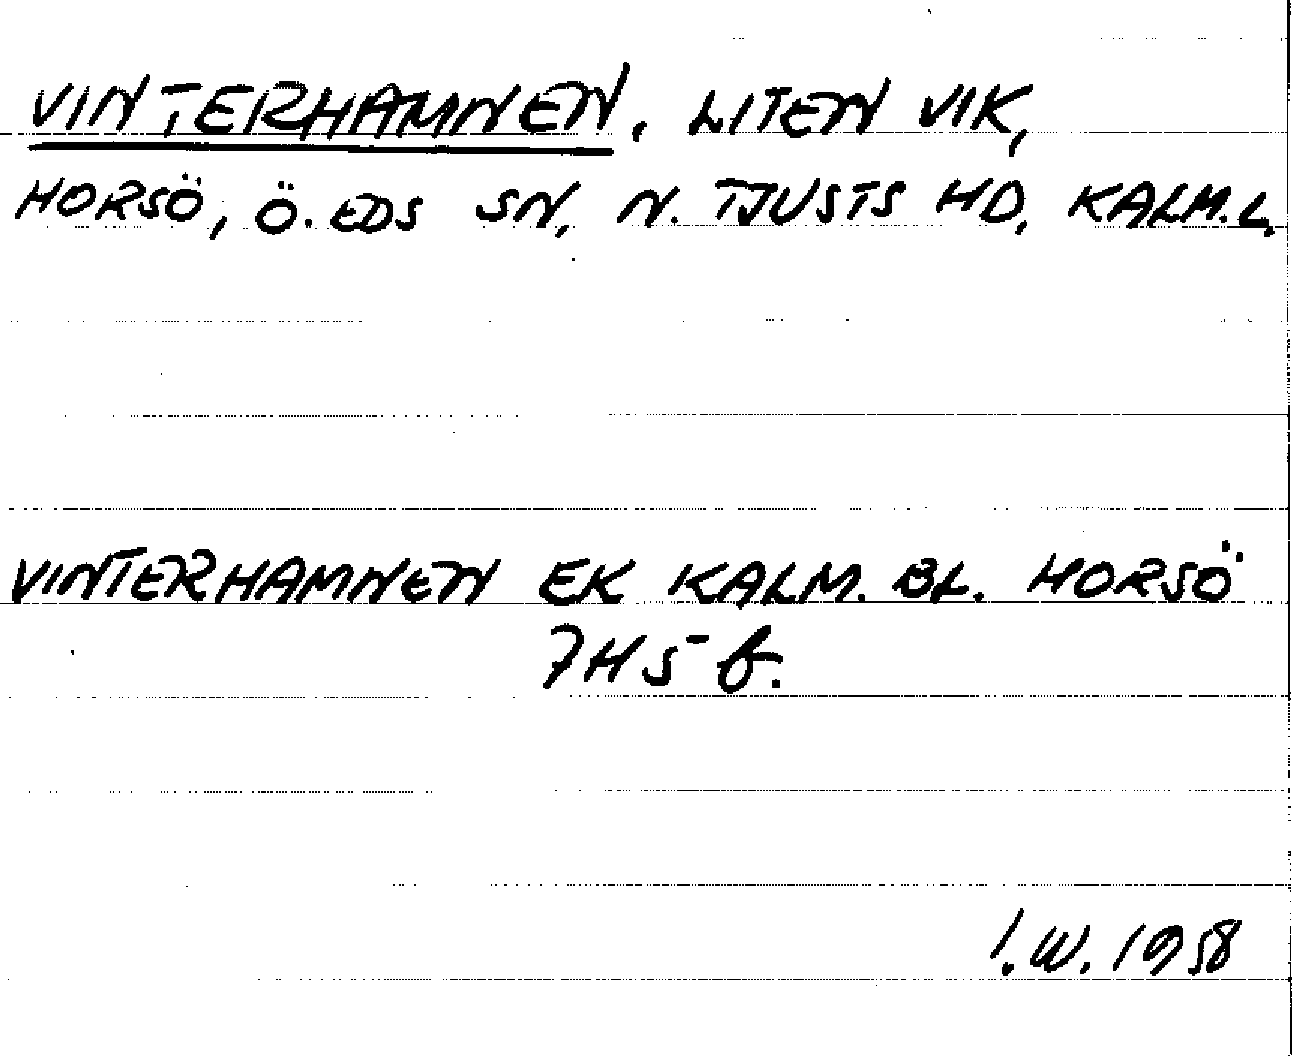 VINTERHAMNEN. LITEN VIK,
HORSÖ, Ö. EDS SN, N. TJUSTS HD, KALM. L.
VINTERHAMNEN EK KALM. BL. HORSÖ
7H5f.
I.W. 1958